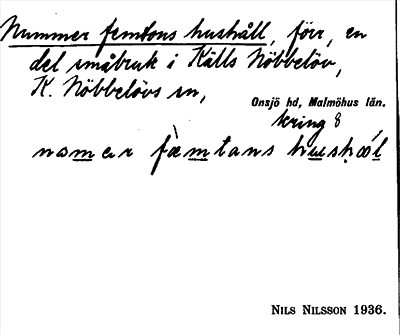 Nummer femtons hushåll, förr, en
del småbruk i Källs Nöbbelöv,
K. Nöbbelövs sn,
Onsjö hd, Malmöhus län.
kring 8
NILS NILSSON 1936.